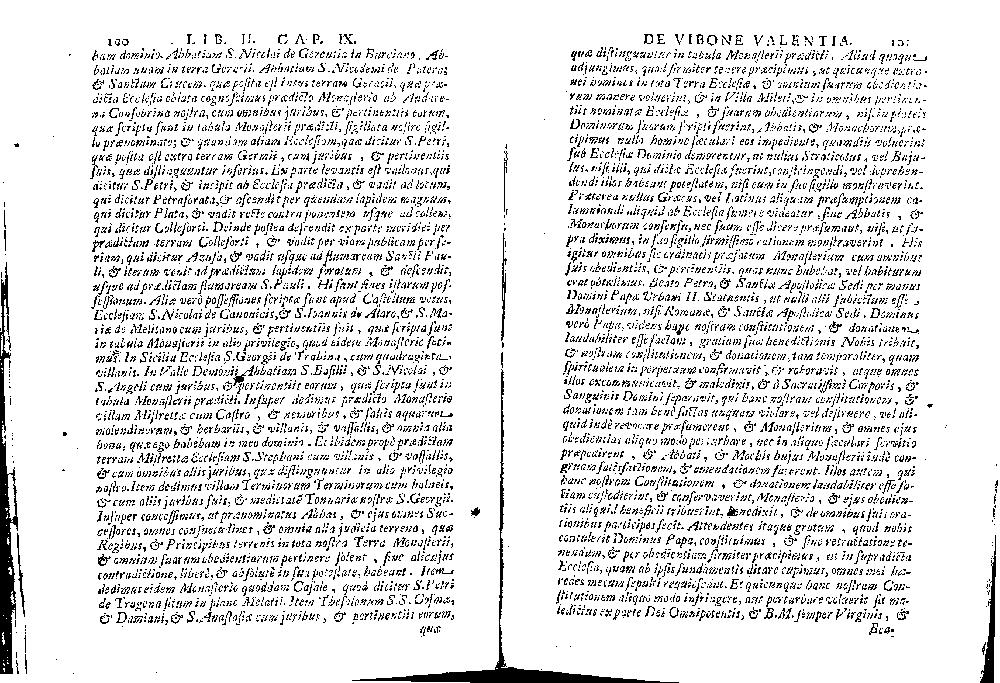 100 LIB. II. CAP. IX.
bam dominio. Abbatiam S. Nicolai de Gerentia in Burciano, Ab-
batiam in terra Geracii. Abbatiam S. Nicodemi de
& Sanctam Crucem, quæ posita est intus terram Geracii, quæ præ-
dicta Ecclesia oblata cognoscimus prædicto Monasterio ab Andrea-
na Consobrina nostra, cum omnibus juribus, & pertinentiis eorum,
quæ scripta sunt in tabula Monasterii prædicti, sigillata nostro sigil-
lo prænominato; & quandam aliam Ecclesiam, quæ dicitur S. Petri,
quæ posita est extra terram , cum juribus, & pertinentiis
suis, quæ distinguuntur inferius. Ex parte levantis est vallonus, qui
dicitur S. Petri, & incipit ab Ecclesia prædicta, & vadit ad locum,
qui dicitur Petraforata, & ascendit per quendam lapidem magnum,
qui dicitur Plata, & vadit recte contra ponentem usque ad collem,
qui dicitur Colleforti. Deinde postea descendit ex parte meridiei per
prædictum terram Colleforti, & vadit per viam publicam per se-
riam, qui dicitur Azusa, & vadit usque ad flumaream Sancti Pau-
li, & iterum venit ad prædictam lapidem foratum, & descendit,
usque ad prædictam flumaream S. Pauli. Hi sunt fines istarum pos-
sessionum. Aliæ verò possessiones scriptæ sunt apud Castellum vetus,
Ecclesiam S. Nicolai de Canonicis, & S. Joannis de Alaro, & S. Ma-
riæ de Melitano cum juribus, & pertinentiis suis, quæ scripta sunt
in tabula Monasterii in alio privilegio, quod eidem Monasterio feci-
mus. In Sicilia Ecclesia S. Georgii de Trahina, cum quadraginta
villanis. In Valle Demonii Abbatiam S. Basilii, & S. Nicolai, &
S. Angeli cum juribus, & pertinentiis eorum, quæ scripta sunt in
tabula Monasterii prædicti. Insuper dedimus prædicto Monasterio
villam Mistrettæ cum Castro, & nemoribus, & saltis aquarum
molendinorum, & herbariis, & villanis, & vassallis, & omnia alia
bona, quæ ego habebam in meo dominio. Et ibidem propè prædictam
terram Mistrettæ Ecclesiam S. Stephani cum villanis, & vassallis,
& cum omnibus aliis juribus, quæ distinguuntur in alio privilegio
nostro. Item dedimus villam Terminorum Terminorum cum balneis,
& cum aliis juribus suis, & medictatē Tonnariæ nostræ S. Georgii.
Insuper concessimus, ut prænominatus Abbas, & ejus omnes Suc-
cessores, omnes consuetudines, & omnia alia judicia terrena, quæ
Regibus, & Principibus terrenis in tota nostra Terra Monasterii,
& omnium suarum obedientiarum pertinere solent, sine alicujus
contradictione, liberè, & absolutè in sua potestate, habeant. Item
dedimus eidem Monasterio quoddam Casale, quod dicitur S. Petri
de Tragona situm in plano Melatii. Item Thesolonum S.S. Cosmæ,
& Damiani, & S. Anastasiæ cum juribus, & pertinentiis eorum,
quæ
DE VIBONE VALENTIA. 101
quæ distinguuntur in tabula Monasterii prædicti. Aliud quoque
adjungimus, quod firmiter tenere præcipimus, ut quicunque extra-
nei homines in tota Terra Ecclesiæ, & omnium suarum obedientia-
rum manere voluerint, & in Villa Mileti, & in omnibus pertinen-
tiis nominatæ Ecclesiæ, & suarum obedientiarum, nisi in plateis
Dominorum suorum scripti fuerint, Abbatis, & Monachorum, præ-
cipimus nullo homine sæculari eos impediente, quamdiu voluerint
sub Ecclesiæ Dominio demorentur, ut nullus Straticotus, vel Baju-
lus, nisi illi, qui dictæ Ecclesiæ fuerint, constringendi, vel deprehen-
dendi illos habeant potestatem, nisi cum in suo sigillo monstraverint.
Præterea nullus Græcus, vel Latinus aliquam præsumptionem ca-
lumniandi aliquid ab Ecclesia sumere videatur, sine Abbatis, &
Monachorum consensu, nec suum esse dicere præsumant, nisi, ut su-
pra diximus, in suo sigillo firmissimo rationem monstraverint. His
igitur omnibus sic ordinatis præfatum Monasterium cum omnibus
suis obedientiis, & pertinentiis, quas nunc habebat, vel habiturum
erat obtulimus. Beato Petro, & Sanctæ Apostolicæ Sedi per manus
Domini Papæ Urbani II. Statuentis, ut nulli alii subjectum esset
Monasterium, nisi Romanæ, & Sanctæ Apostolicæ Sedi. Dominus
verò Papa, videns hanc nostram constitutionem, & donationem
laudabiliter esse factam, gratiam suæ benedictionis Nobis tribuit,
& nostram constitutionem, & donationem, tam temporaliter, quam
spiritualem in perpetuum confirmavit, & roboravit, atque omnes
illos excommunicavit, & maledixit, & à Sacratissimi Corporis, &
Sanguinis Domini separavit, qui hanc nostram constitutionem, &
donationem tam benè factas unquam violare, vel destruere, vel ali-
quid indè revocare præsumerent, & Monasterium, & omnes ejus
obedientias aliquo modo perturbare, nec in aliquo sæculari servitio
præpedirent, & Abbati, & Monachis hujus Monasterii indè con-
gruam satisfactionem, & emendationem facerent. Illos autem, qui
hanc nostram Constitutionem, & donationem laudabiliter esse fa-
ctam custodierint, & conservaverint, Monasterio, & ejus obedien-
tiis aliquid beneficii tribuerint, benedixit, & de omnibus suis ora-
tionibus participes fecit. Attendentes itaque gratum, quod nobis
contulerit Dominus Papa, constituimus, & sine retractatione te-
nendum, & per obedientiam firmiter præcipimus, ut in supradicta
Ecclesia, quam ab ipsis fundamentis ditare cupimus, omnes mei hæ-
redes mecum sepulti requiescant. Et quicunque hanc nostram Con-
stitutionem aliquo modo infringere, aut perturbare voluerit sit ma-
ledictus ex parte Dei Omnipotentis, & B.M. semper Virginis, &
Bea-